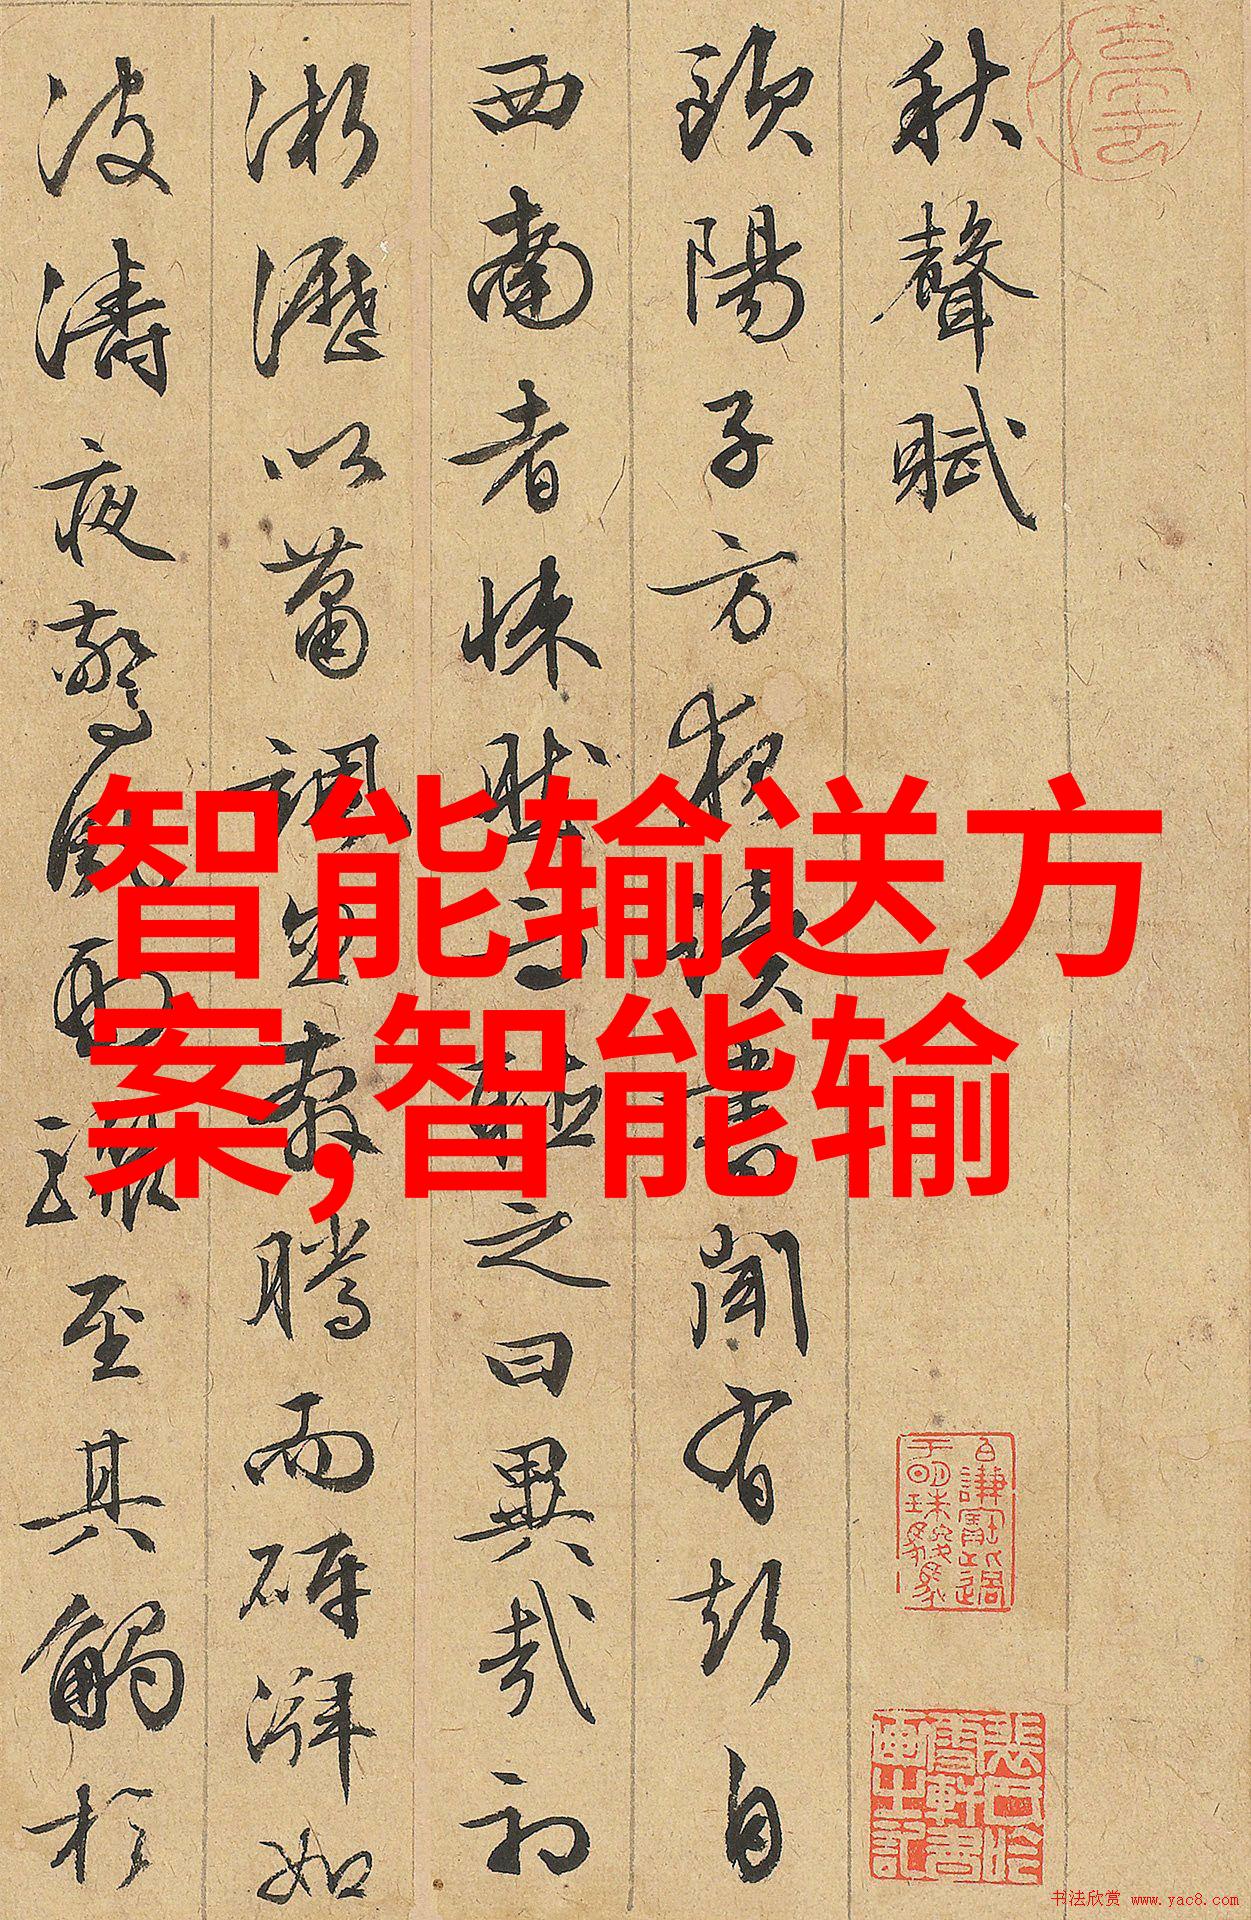 秋聲賦
歐陽子方夜讀書聞有聲自
西南者悚然而聽之曰異哉初
淅瀝以蕭奔騰而砰湃如
波濤夜驚風雨驟至其觸於
智能输送方
案,智能输
书法欣赏 www.yac8.com